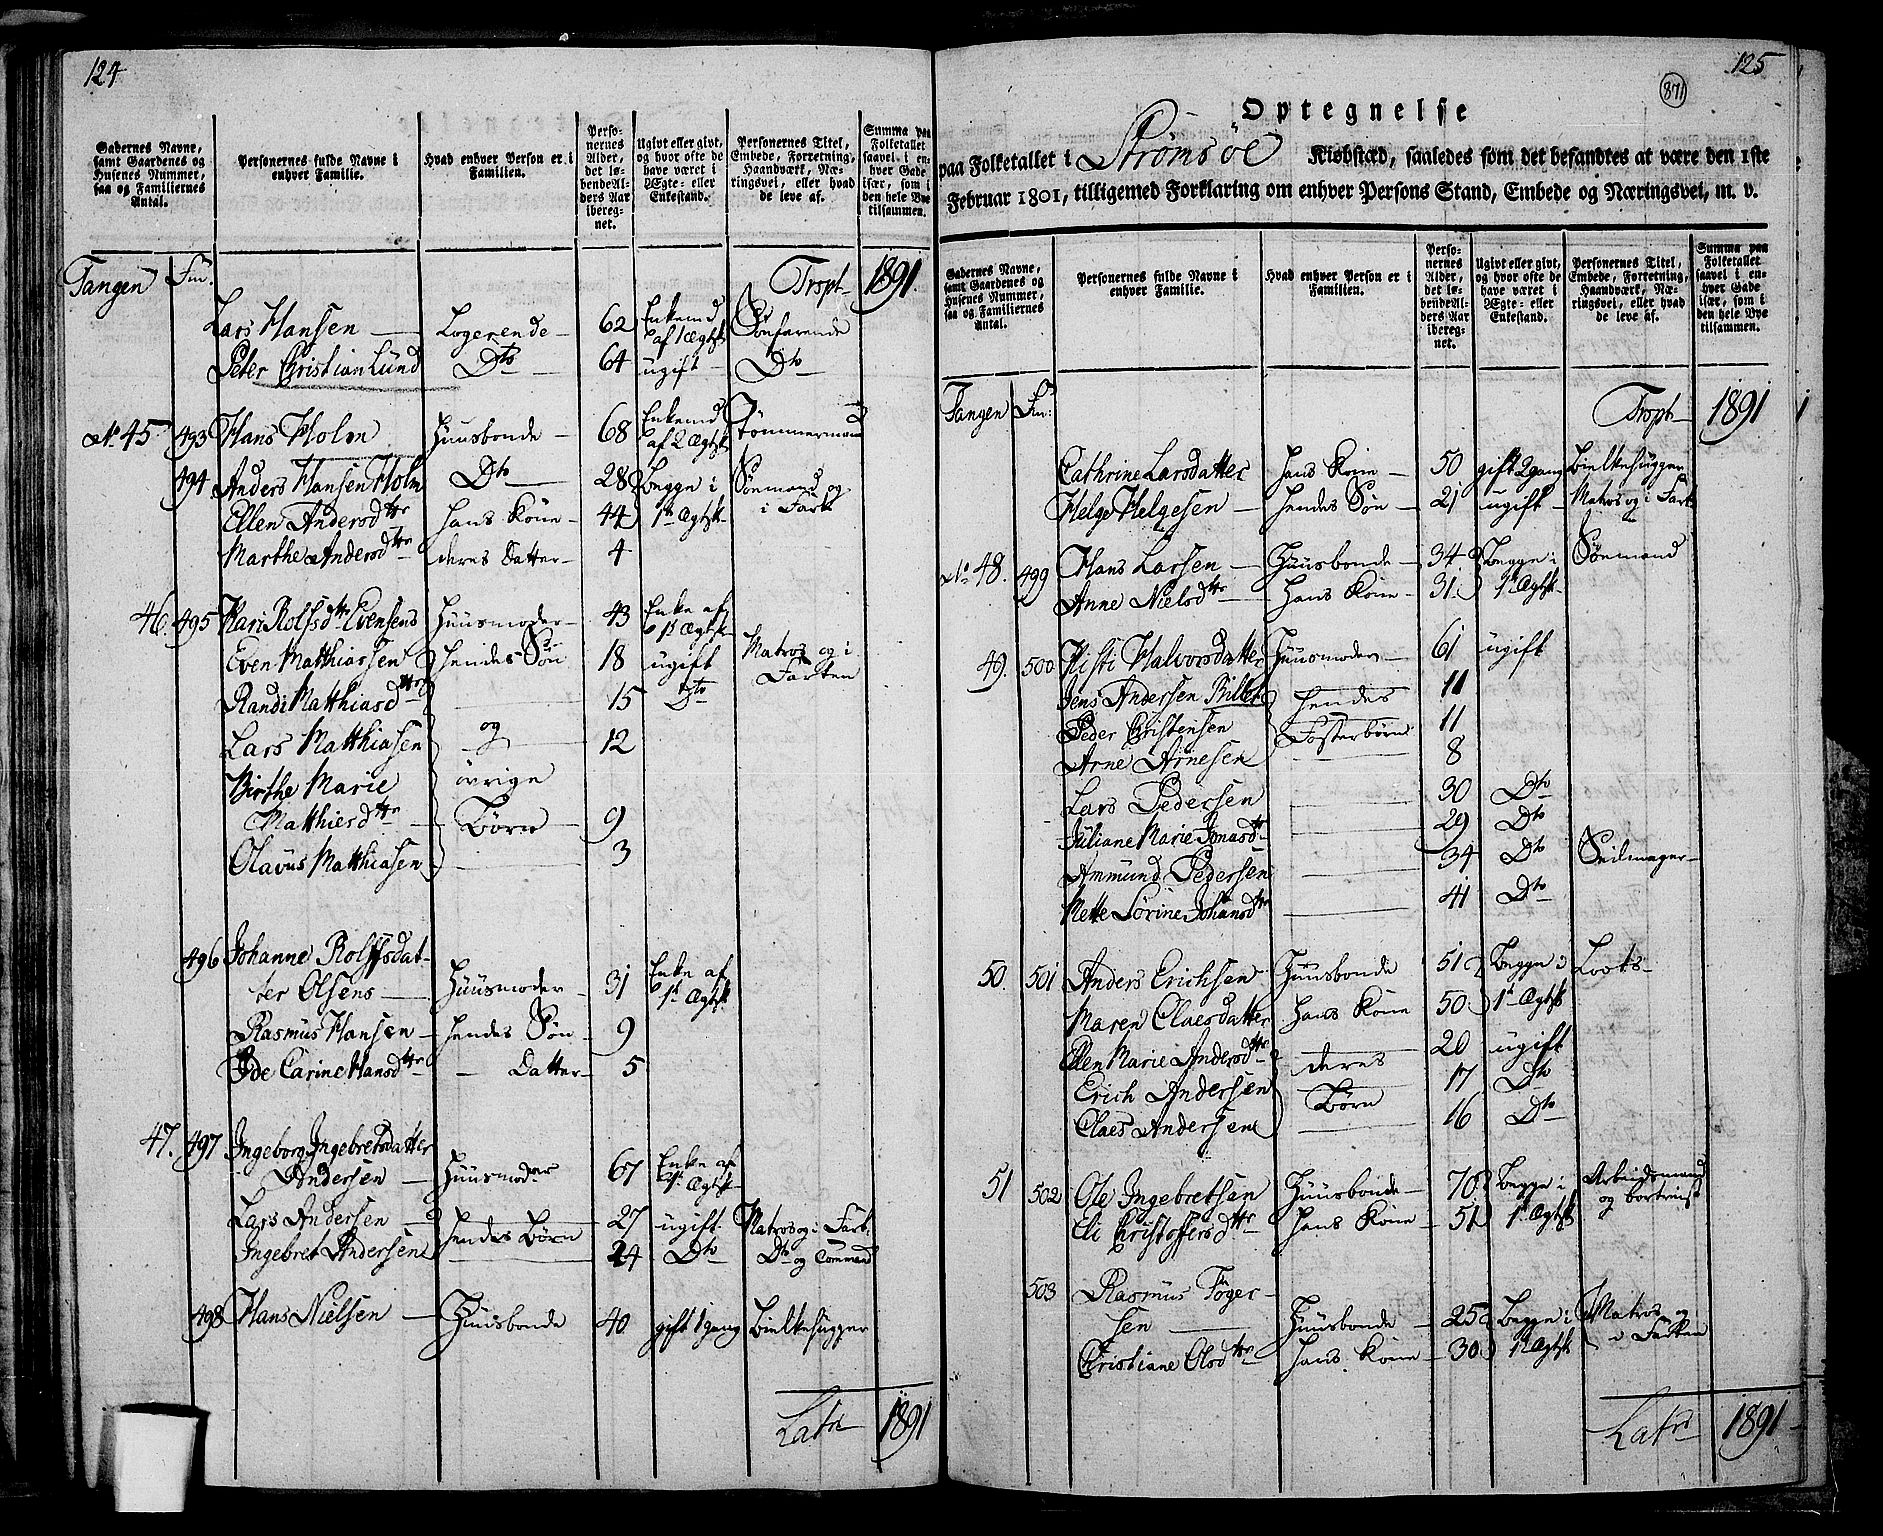 124
Gadernes Navne, samt Gaardenes og Husenes Nummer, saa og Familiernes Antal.
Personernes fulde Navne i enhver Familie.
Hvad enhver Person er i Familien.
Personernes Alder, det løbende Alders Aar iberegnet.
Ugivt eller givt, og hvor ofte de have været i Ægte- eller Enkestand.
Personernes Titel, Embede, Forretning, Haandværk, Næringsvei, eller hvad de leve af.
Summa paa Folketallet saavel i enhver Gade især, som i den hele Bye tilsammen.
Tangen Fm. Trspt 1891.
Lars Hansen Logerende 62 Enkemd af 1 Ægtsk Söefarende
Peter Christian Lund Dto 64 ugift Dto
No 45 493 Hans Holm Huusbonde 68 Enkemd af 2 Ægtsk Tömmermand
494 Anders Hansen Holm Dto 28 Begge i Söemand og
Ellen Andersdttr hans Kone 44 1te Ægtsk i Fart
Marthe Andersdttr deres Datter 4
46. 495 Kari Rolfsdttr Evensens Huusmoder 43 Enke af 1te Ægtsk
Even Matthiassen hendes Sön 18 ugift Matros og i Farten
Randi Matthiasdttr 15 Dto
Lars Matthiasen og 12
Birthe Marie övrige
Matthiesdttr Börn 9
Olavus Matthiasen 3
496 Johanne Rolfsdat-
ter Olsens Huusmoder 31 Enke af 1te Ægtsk
Rasmus Hansen hendes Sön 9
Ide Carine Hansdttr Datter 5
47. 497 Ingeborg Ingebretsdatter
Andersen Huusmoder 67 Enke af 1te Ægtsk
Lars Andersen hendes Börn 27 ugift Matros og i Fart
Ingebret Andersen 24 Dto Dto og Tommand
498 Hans Nielsen Huusbonde 40 gift 1 gang Bielkehugger
Latr 1891
125
871
Optegnelse
paa Folketallet i Strømsöe Kiøbstæd, saaledes som det befandtes at være den 1ste
Februar 1801, tilligemed Forklaring om enhver Persons Stand, Embede og Næringsvei, m. v.
Gadernes Navne, samt Gaardenes og Husenes Nummer, saa og Familiernes Antal.
Personernes fulde Navne i enhver Familie.
Hvad enhver Person er i Familien.
Personernes Alder, det løbende Alders Aar iberegnet.
Ugivt eller givt, og hvor ofte de have været i Ægte- eller Enkestand.
Personernes Titel, Embede, Forretning, Haandværk, Næringsvei, eller hvad de leve af.
Summa paa Folketallet saavel i enhver Gade især, som i den hele Bye tilsammen.
Tangen Fm: Trspt 1891
Cathrine Larsdatter hans Kone 50 gift 2 gang Bielkehugger
Helge Helgesen hendes Sön 21 ugift Matros og i Fart
No 48. 499 Hans Larsen Huusbonde 34 Begge i Söemand
Anne Nielsdttr hans Kone 31 1te Ægtsk
49. 500 Kisti Halvorsdatter Huusmoder 61 ugift
Jens Andersen Billet hendes 11
Peder Christensen Fosterbörn 11
Arne Arnesen 8
Lars Pedersen 30 Dto
Juliane Marie Jonasdttr 29 Dto
Ammund Pedersen 34 Dto Seilmager
Mette Sörine Johansdttr 41 Dto
50. 501 Anders Erichsen Huusbonde 51 Begge i Loots
Maren Claesdatter hans Kone 50 1te Ægtsk
Ellen Marie Andersdttr deres 20 ugift
Erich Andersen Börn 17 Dto
Claes Andersen 16 Dto
51 502 Ole Ingebretsen Huusbonde 70 Begge i Arbeidsmand
Eli Christoffersdttr hans Kone 51 1te Ægtsk og
503 Rasmus Töger-
sen Huusbonde 25 Begge i Matros og
Christiane Olsdttr hans Kone 30 1te Ægtsk i Farten
Latr 1891